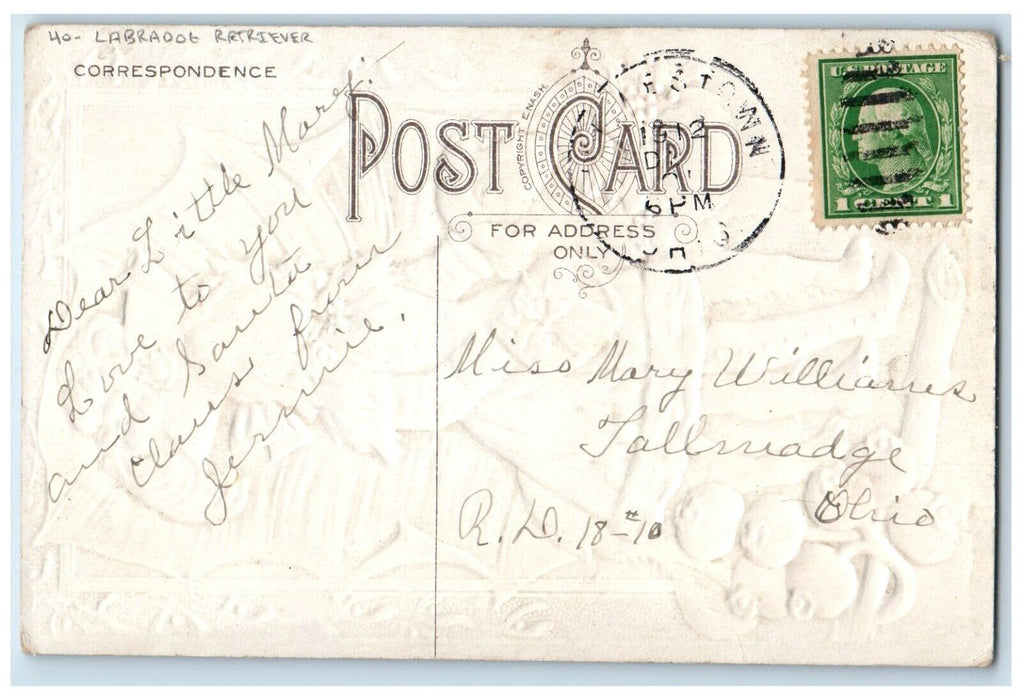 40- LABRADOG RRTRIEVER
CORRESPONDENCE
POST CARD
COPYRIGHT E.NASH.
FOR ADDRESS
ONLY
1912
6 PM
U.S. POSTAGE
1 1
Dear Little Mary:-
Love to you
and Santa
Claus from
Jennie.
Miss Mary Williams
Tallmadge
Ohio
R.D. 18-#10